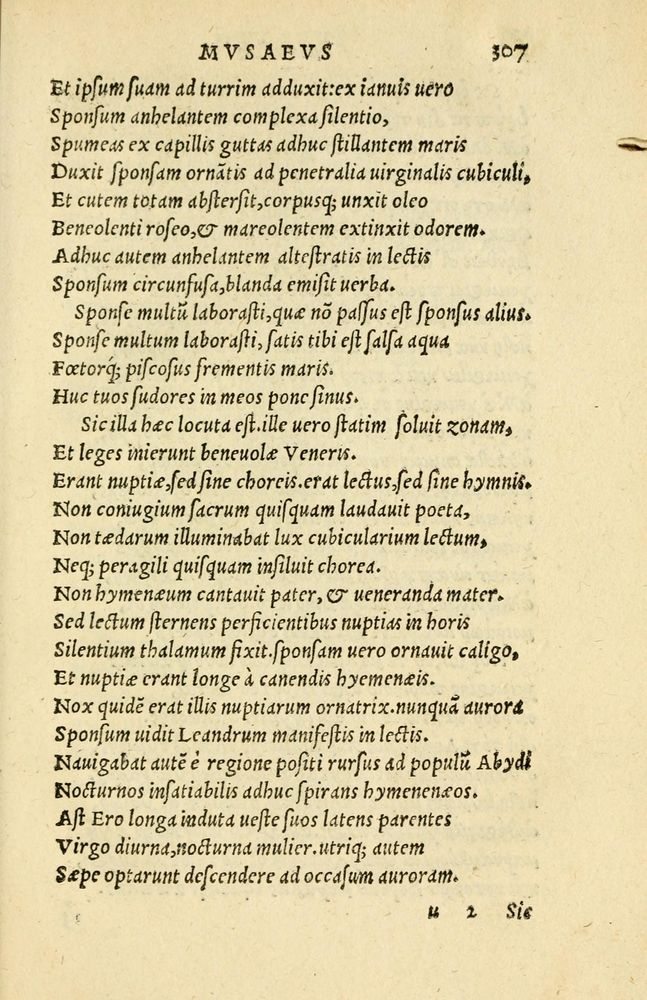 MVSAEVS 307
Et ipsum suam ad turrim adduxit:ex ianuis uero
Sponsum anhelantem complexa silentio,
Spumeas ex capillis guttas adhuc stillantem maris
Duxit sponsam ornātis ad penetralia uirginalis cubiculi,
Et cutem totam abstersit,corpusq; unxit oleo
Beneolenti roseo,& mareolentem extinxit odorem.
Adhuc autem anhelantem altestratis in lectis
Sponsum circunfusa,blanda emisit uerba.
Sponse multū laborasti,quæ nō passus est sponsus alius.
Sponse multum laborasti, satis tibi est salsa aqua
Fœtorq́; piscosus frementis maris.
Huc tuos sudores in meos pone sinus.
Sic illa hæc locuta est.ille uero statim soluit zonam,
Et leges inierunt beneuolæ Veneris.
Erant nuptiæ,sed sine choreis.erat lectus,sed sine hymnis.
Non coniugium sacrum quisquam laudauit poeta,
Non tædarum illuminabat lux cubicularium lectum,
Neq; peragili quisquam insiluit chorea.
Non hymenæum cantauit pater, & ueneranda mater.
Sed lectum sternens perficientibus nuptias in horis
Silentium thalamum fixit.sponsam uero ornauit caligo,
Et nuptiæ erant longe à canendis hyemenæis.
Nox quidē erat illis nuptiarum ornatrix.nunquā aurora
Sponsum uidit Leandrum manifestis in lectis.
Nauigabat autē è regione positi rursus ad populū Abydi
Nocturnos insatiabilis adhuc spirans hymenenæos.
Ast Ero longa induta ueste suos latens parentes
Virgo diurna,nocturna mulier.utriq; autem
Sæpe optarunt descendere ad occasum auroram.
u 2 Sic